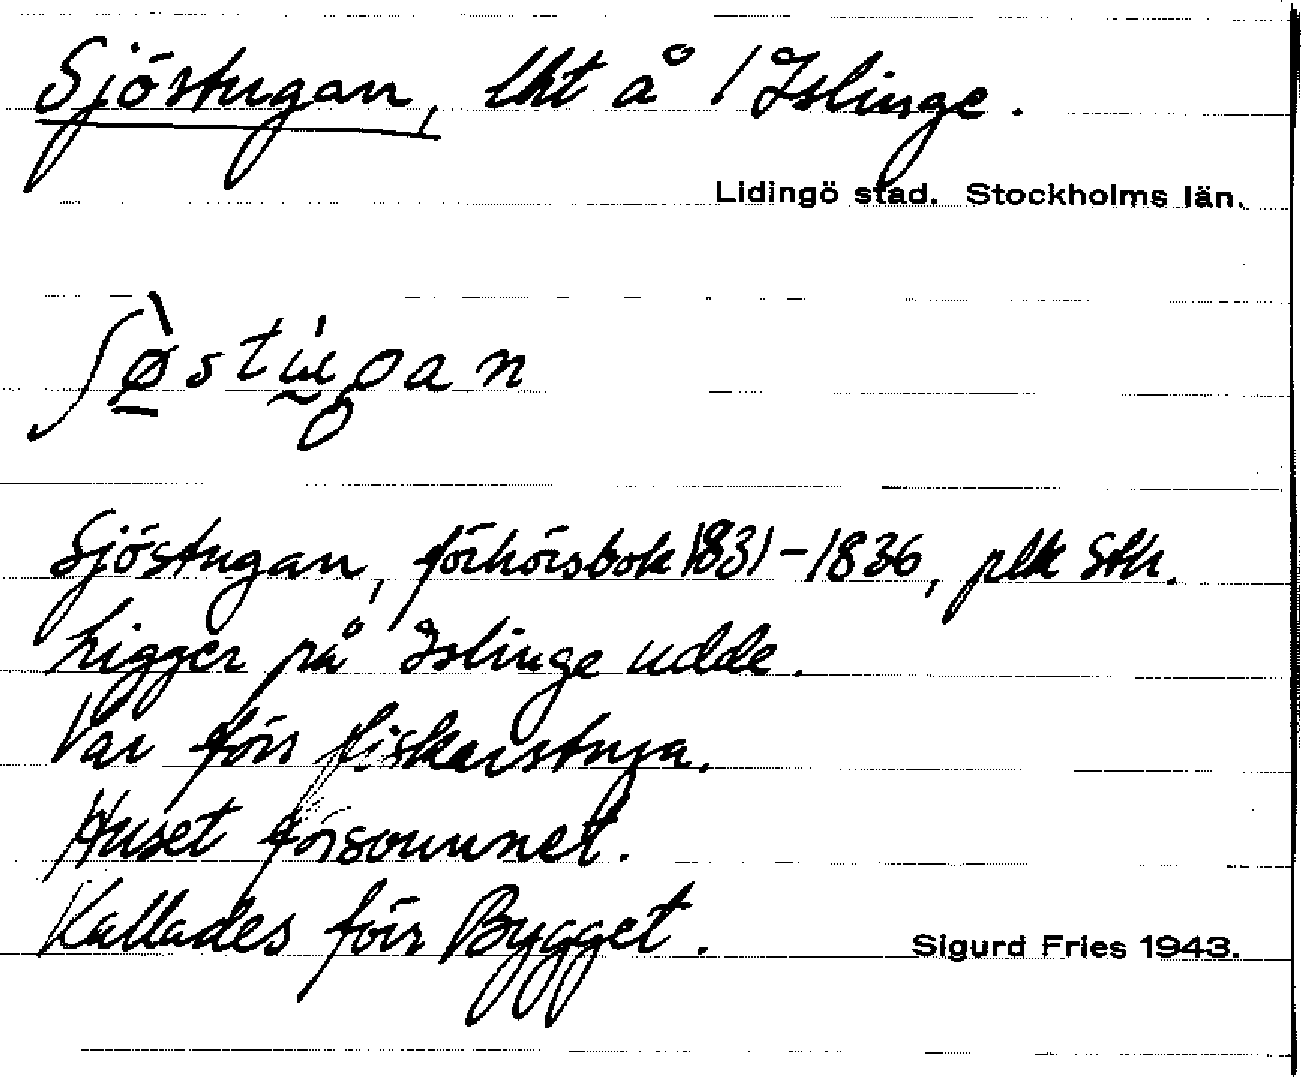 Sjöstugan, lht å / Islinge.
Lidingö stad. Stockholms län.
ʃø̀stu̇gan
Sjöstugan, förhörsbok 1831-1836, plk Sth.
Ligger på Islinge udde.
Var förr fiskarstuga.
Huset försvunnet.
Kallades förr Bygget.
Sigurd Fries 1943.